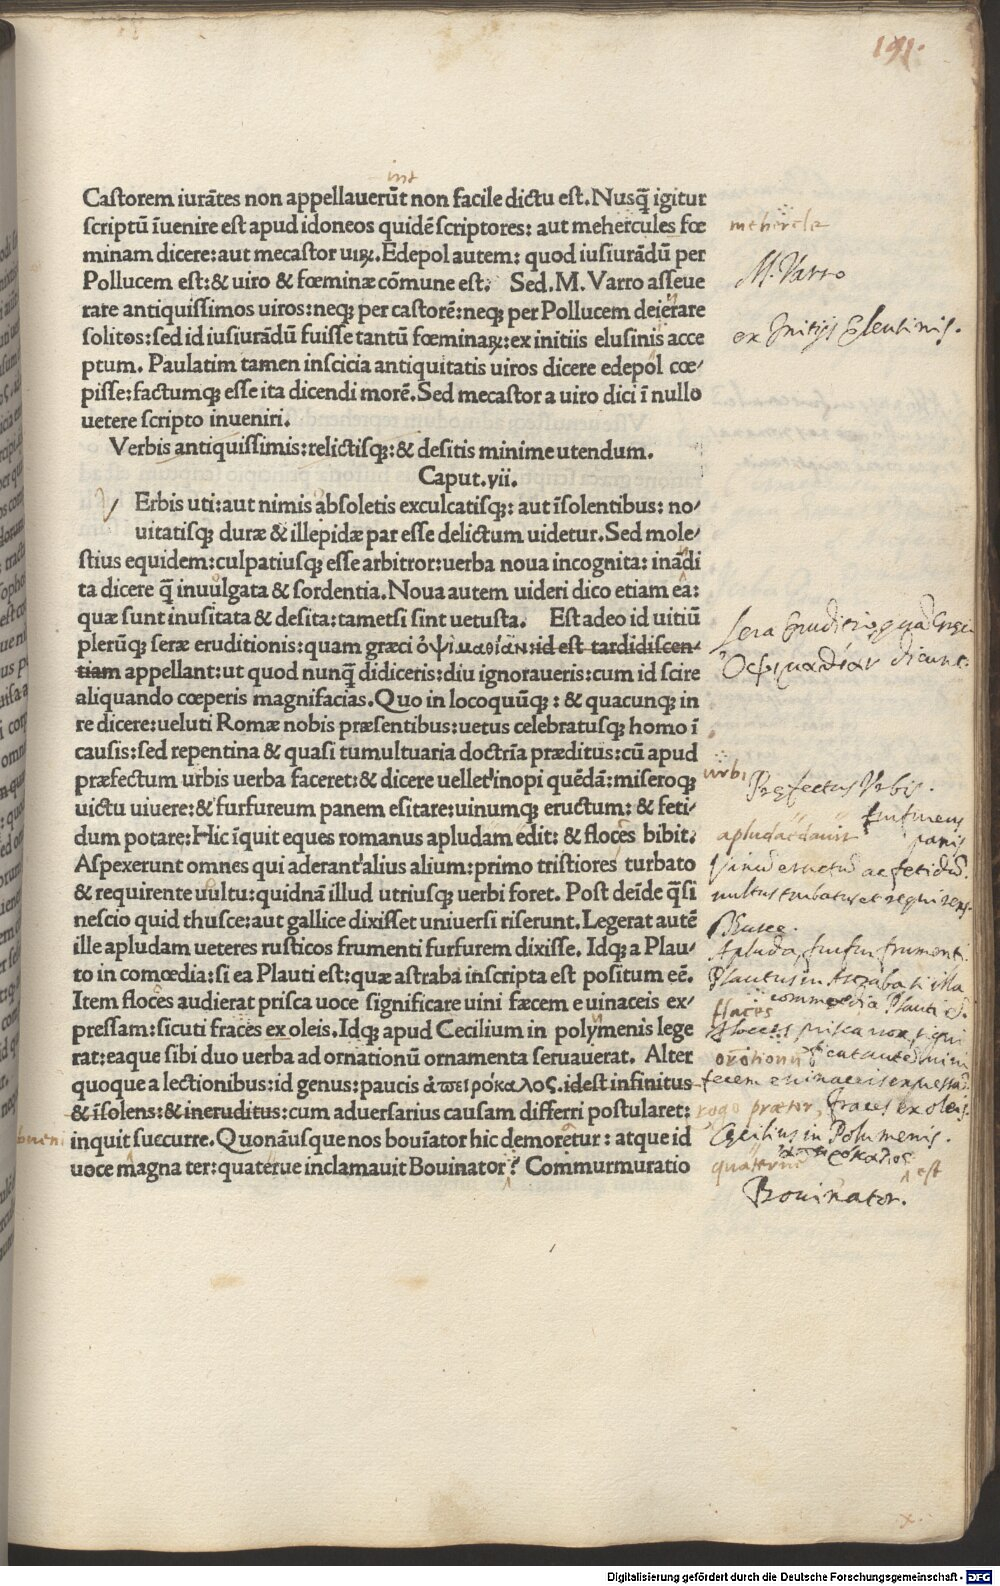 191.
int
Castorem iurātes non appellauerūt non facile dictu est. Nusq̄ igitur
scriptū īuenire est apud idoneos quidē scriptores: aut mehercules fœ
minam dicere: aut mecastor uiꝝ. Edepol autem: quod iusiurādū per
Pollucem est: & uiro & fœminæ cōmune est. Sed. M. Varro asseue
rare antiquissimos uiros: neqꝫ per castorē: neqꝫ per Pollucem deierare
solitos: sed id iusiurādū fuisse tantū fœminaꝝ: ex initiis elusinis acce
ptum. Paulatim tamen inscicia antiquitatis uiros dicere edepol cœ-
pisse: factumqꝫ esse ita dicendi morē. Sed mecastor a uiro dici ī nullo
uetere scripto inueniri.
Verbis antiquissimis: relictisqꝫ: & desitis minime utendum.
Caput. yii.
V Erbis uti: aut nimis absoletis exculcatisqꝫ: aut īsolentibus: no-
uitatisqꝫ duræ & illepidæ par esse delictum uidetur. Sed mole-
stius equidem: culpatiusqꝫ esse arbitror: uerba noua incognita: inādi
ta dicere q̄ inuulgata & sordentia. Noua autem uideri dico etiam ea:
quæ sunt inusitata & desita: tametsi sint uetusta. Est adeo id uitiū
plerūqꝫ seræ eruditionis: quam græci ὀψιμαθίαν: id est tardidiscen-
tiam appellant: ut quod nunq̄ didiceris: diu ignoraueris: cum id scire
aliquando cœperis magnifacias. Quo in locoquūqꝫ: & quacunqꝫ in
re dicere: ueluti Romæ nobis præsentibus: uetus celebratusqꝫ homo ī
causis: sed repentina & quasi tumultuaria doctrīa præditus: cū apud
præfectum urbis uerba faceret: & dicere uellet inopi quēdā: miseroqꝫ
uictu uiuere: & furfureum panem esitare: uinumqꝫ eructum: & feti-
dum potare: Hic īquit eques romanus apludam edit: & floces bibit.
Aspexerunt omnes qui aderant alius alium: primo tristiores turbato
& requirente uultu: quidnā illud utriusqꝫ uerbi foret. Post deīde q̄si
nescio quid thusce: aut gallice dixisset uniuersi riserunt. Legerat autē
ille apludam ueteres rusticos frumenti furfurem dixisse. Idqꝫ a Plau-
to in comœdia: si ea Plauti est: quæ astraba inscripta est positum eē.
Item floces audierat prisca uoce significare uini fæcem e uinaceis ex-
pressam: sicuti fraces ex oleis. Idqꝫ apud Cecilium in polymenis lege
rat: eaque sibi duo uerba ad ornationū ornamenta seruauerat. Alter
quoque a lectionibus: id genus: paucis ἀπειρόκαλος. idest infinitus
& īsolens: & ineruditus: cum aduersarius causam differri postularet:
inquit succurre. Quonāusque nos bouīator hic demoretur: atque id
uoce magna ter: quaterue inclamauit Bouinator? Commurmuratio
mehercle
M. Varro
ex Initijs Eleusinis.
Sera Eruditio, quā Graeci
Ὀψιμαθίαν dicunt.
urbi
Præfectus Urbis.
furfureus
panis
apludā
Vinū eructū ac fetidū.
Thusce.
Apluda, furfur frumenti.
Plautus in Astraba si illa
commœdia Plauti ē.
flaces
rogo prætor,
fraces ex oleis.
Cæcilius in Polumenis.
quaterne
est
Bouinator.
Digitalisierung gefördert durch die Deutsche Forschungsgemeinschaft - DFG